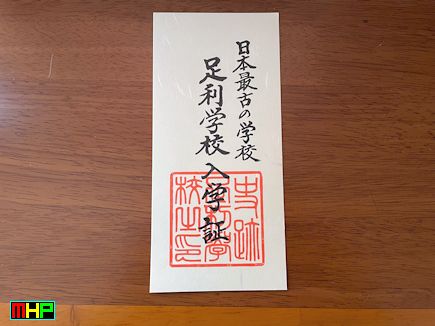 日本最古の学校
足利学校入学証
史跡
足利学
校之印
MHP